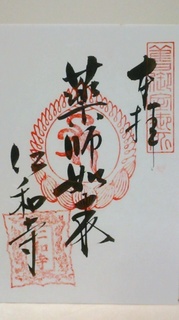 奉拝
薬師如来
仁和寺